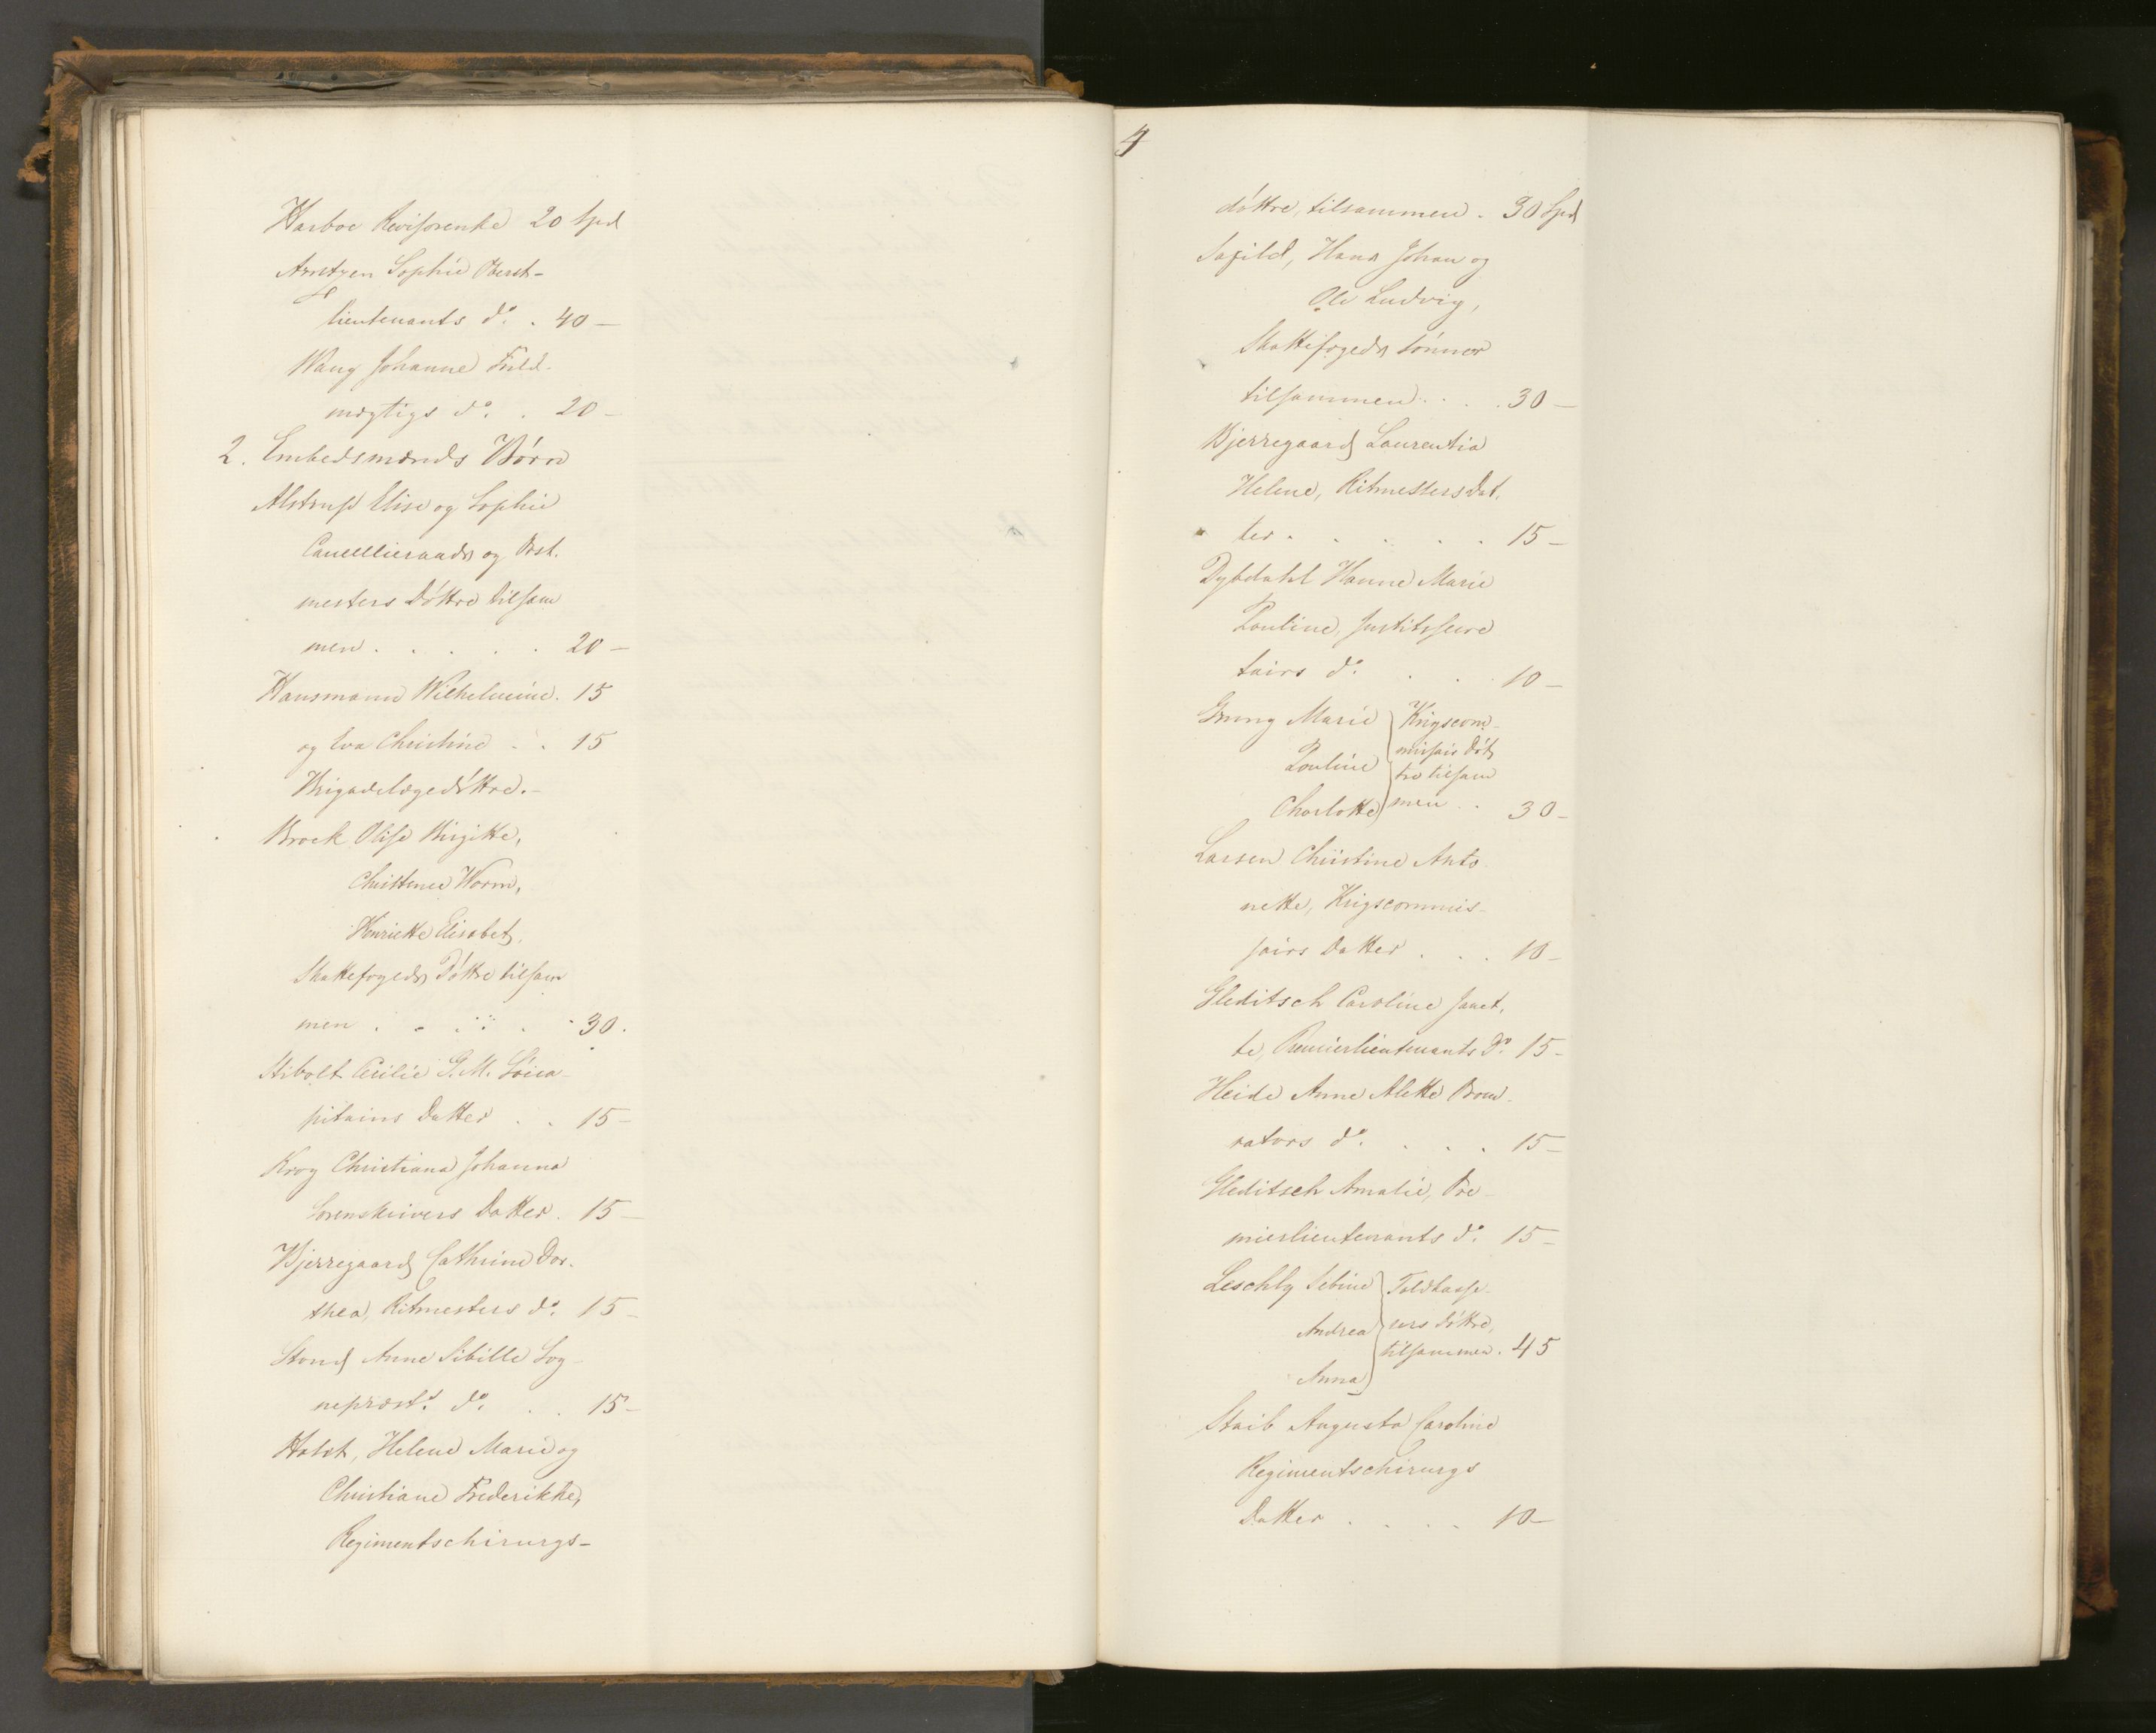 Harboe Revisorenke 20 Spd
Arntzen Sophie Oberst-
lieutenants do. . 40 —
Wang Johanne Fuld-
mægtigs do. . 20 —
2. Embedsmænds Börn
Alstrup Elise og Sophie
Cancellieraads og Post-
mesters Döttre tilsam
men . . . . . 20 —
Hansmann Wilhelmine . 15
og Eva Christine . . 15
Brigadelægedöttre. —
Brock Olise Birgitte,
Christence Worm,
Henriette Elisabet,
Skattefogeds Döttre tilsam
men . . . . . 30.
Stibolt Cecilie G. M. Söica-
pitains Datter . . 15 —
Krog Christiana Johanna
Sorenskrivers Datter. 15 —
Bjerregaard Cathrine Dor.
thea, Ritmesters do. 15 —
Stoud Anne Sibille Sog-
neprests do. . . 15 —
Holst, Helene Marie og
Christiane Frederikke,
Regimentschirurgs-
4
döttre, tilsammen . 30 Spd
Hans Johan og
Ole Ludvig,
Skattefogeds Sönner
tilsammen . . . . 30 —
Bjerregaard Laurentia
Helene, Ritmesters Dat.
ter . . . . . 15 —
Dybdahl Hanne Marie
Pouline, Justitssecre
tairs do. . . . 10 —
Grung Marie
Pouline
Charlotte
Krigscom-
missairs Döt
tre tilsam
men . . 30 —
Larsen Christine Anto
nette, Krigscommis-
sairs Datter . . . 10 —
Gleditsch Caroline Janet,
te, Premierlieutenants Do. 15 —
Heide Anne Alette Procu-
rators do. . . . 15 —
Gleditsch Amalie, Pre-
mierlieutenants do. 15 —
Leschly Sebine
Andrea
Anna
Toldkasse-
rers döttre,
tilsammen . 45
Staib Augusta Caroline
Regimentschirurgs
Datter . . . . 10 —